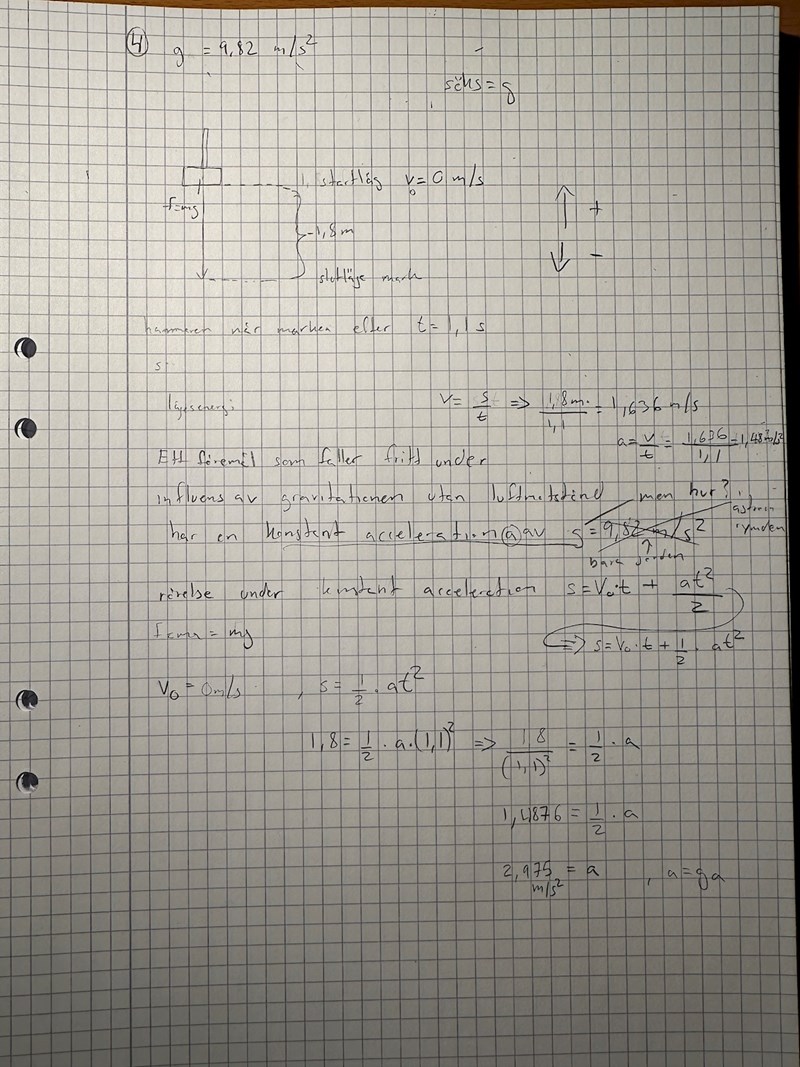 4 g = 9,82 m/s²
sökes = g
startläg v₀ = 0 m/s
F=mg
+
-1,8m
-
slutläge mark
hammeren når marken efter t = 1,1 s
s:
lägesenergi
v = s/t => 1,8m/1,1 = 1,636 m/s
a = v/t = 1,636/1,1 = 1,487 m/s²
Ett föremål som faller fritt under
influens av gravitationen utan luftmotstånd men hur?
har en konstant acceleration a av g = 9,82 m/s²
rymden
bara jorden
rörelse under konstant acceleration s = V₀·t + at²/2
= mg
=> s = V₀·t + 1/2 · at²
V₀ = 0m/s , s = 1/2 · at²
1,8 = 1/2 · a · (1,1)² => 1,8/(1,1)² = 1/2 · a
1,4876 = 1/2 · a
2,975 m/s² = a , a = ga